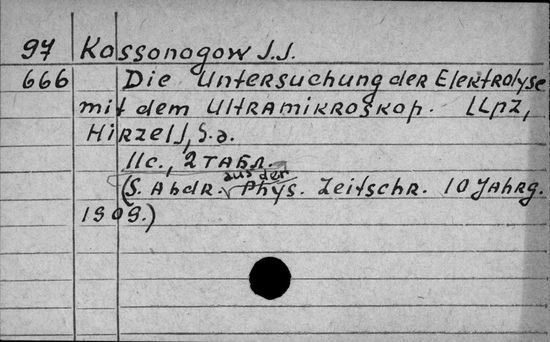 97 Kossonogow J.J.
666 Die Untersuchung der Elektrolyse
mit dem Ultramikroskop. [Lpz,
Hirzel], S.a.
11c., 2 табл.
(S. Abdr. aus der Phys. Zeitschr. 10 Jahrg.
1909.)